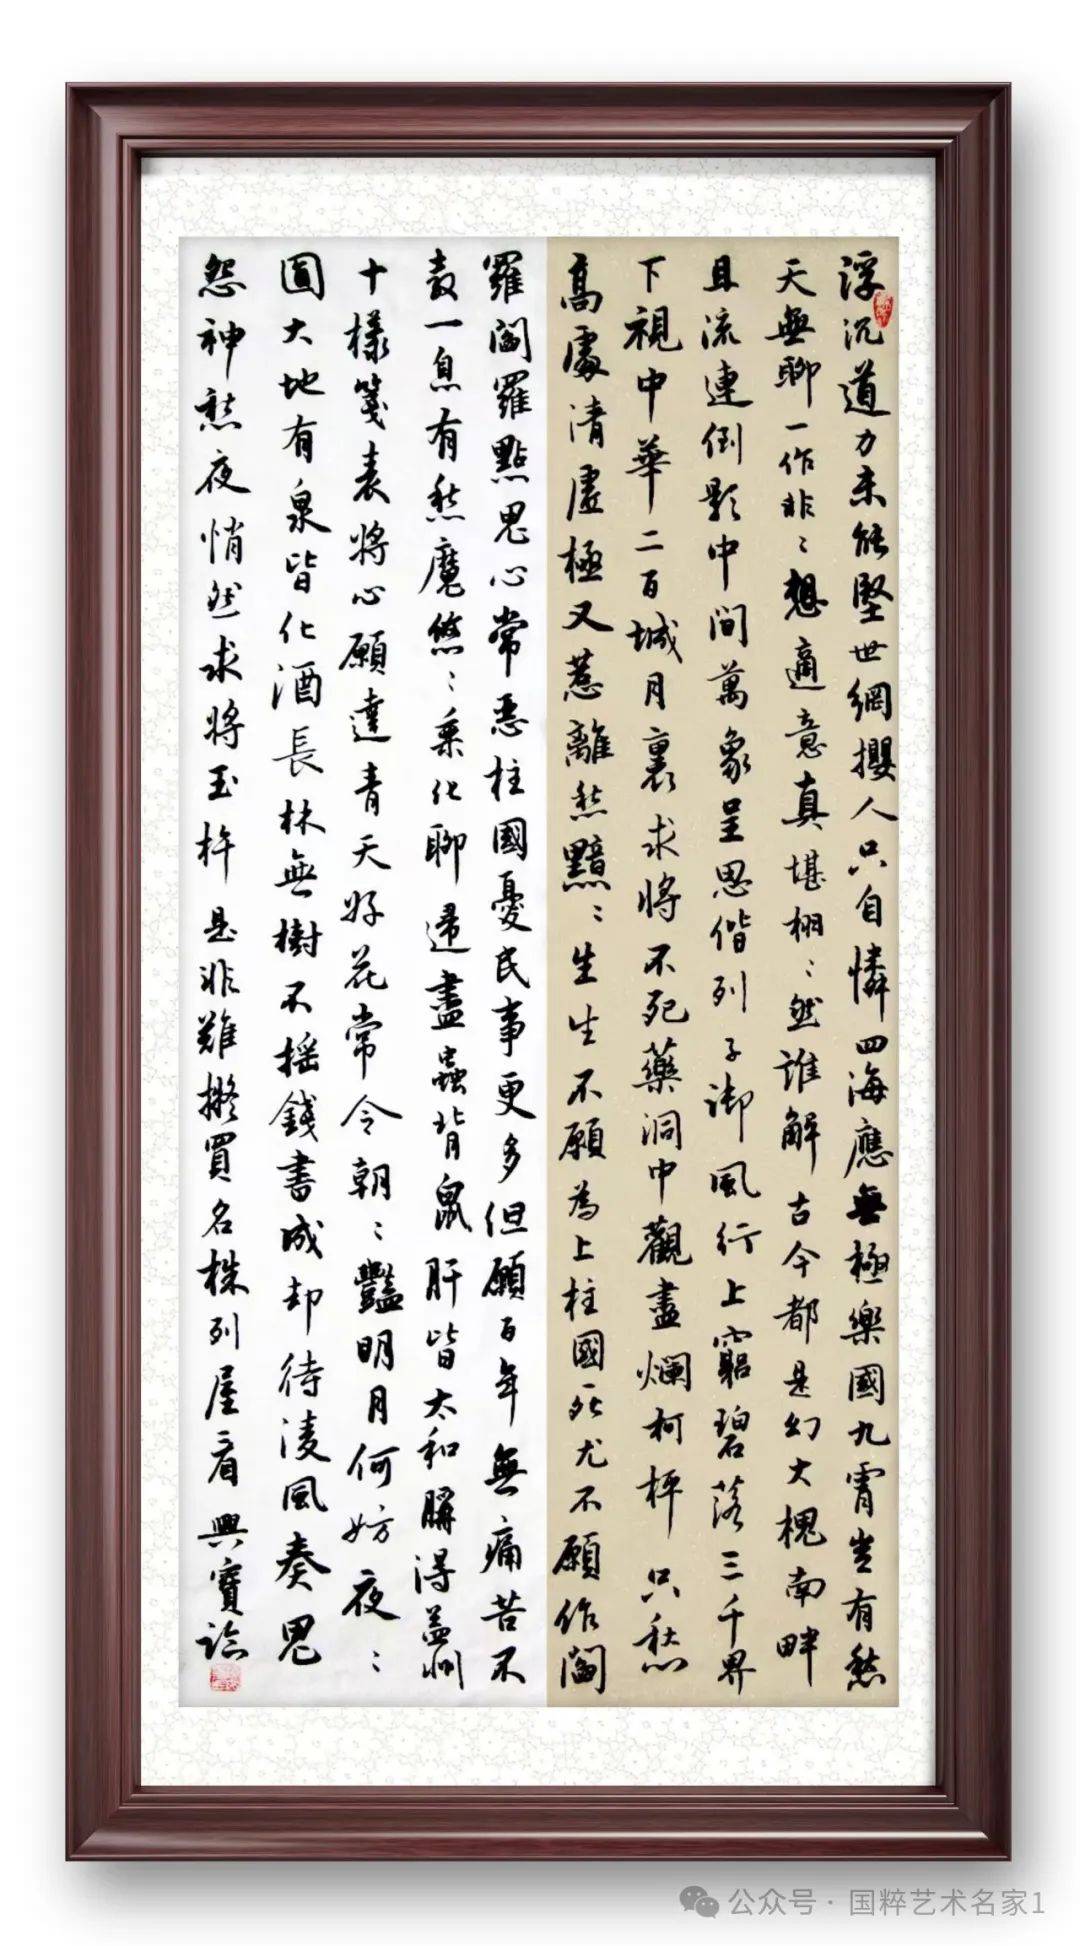 浮沉道力未能堅世網攖人只自憐四海應無極樂國九霄豈有愁
天無聊一作非非想適意真堪栩栩然誰解古今都是幻大槐南畔
且流連倒影中間萬象呈思偕列子御風行上窮碧落三千界
下視中華二百城月裏求將不死藥洞中觀盡爛柯枰只愁
高處清虛極又惹離愁黯黯生生生不願為上柱國死尤不願作閻
羅閻羅點鬼心常惡柱國憂民事更多但願百年無痛苦不
教一息有愁魔悠悠乘化聊歸盡蟲背鼠肝皆太和賸得益州
十樣箋表將心願達青天好花常令朝朝豔明月何妨夜夜
圓大地有泉皆化酒長林無樹不搖錢書成却待凌風奏鬼
怨神愁夜悄然求將玉杵是非難擬買名株列屋看興寶
公众号·国粹艺术名家1